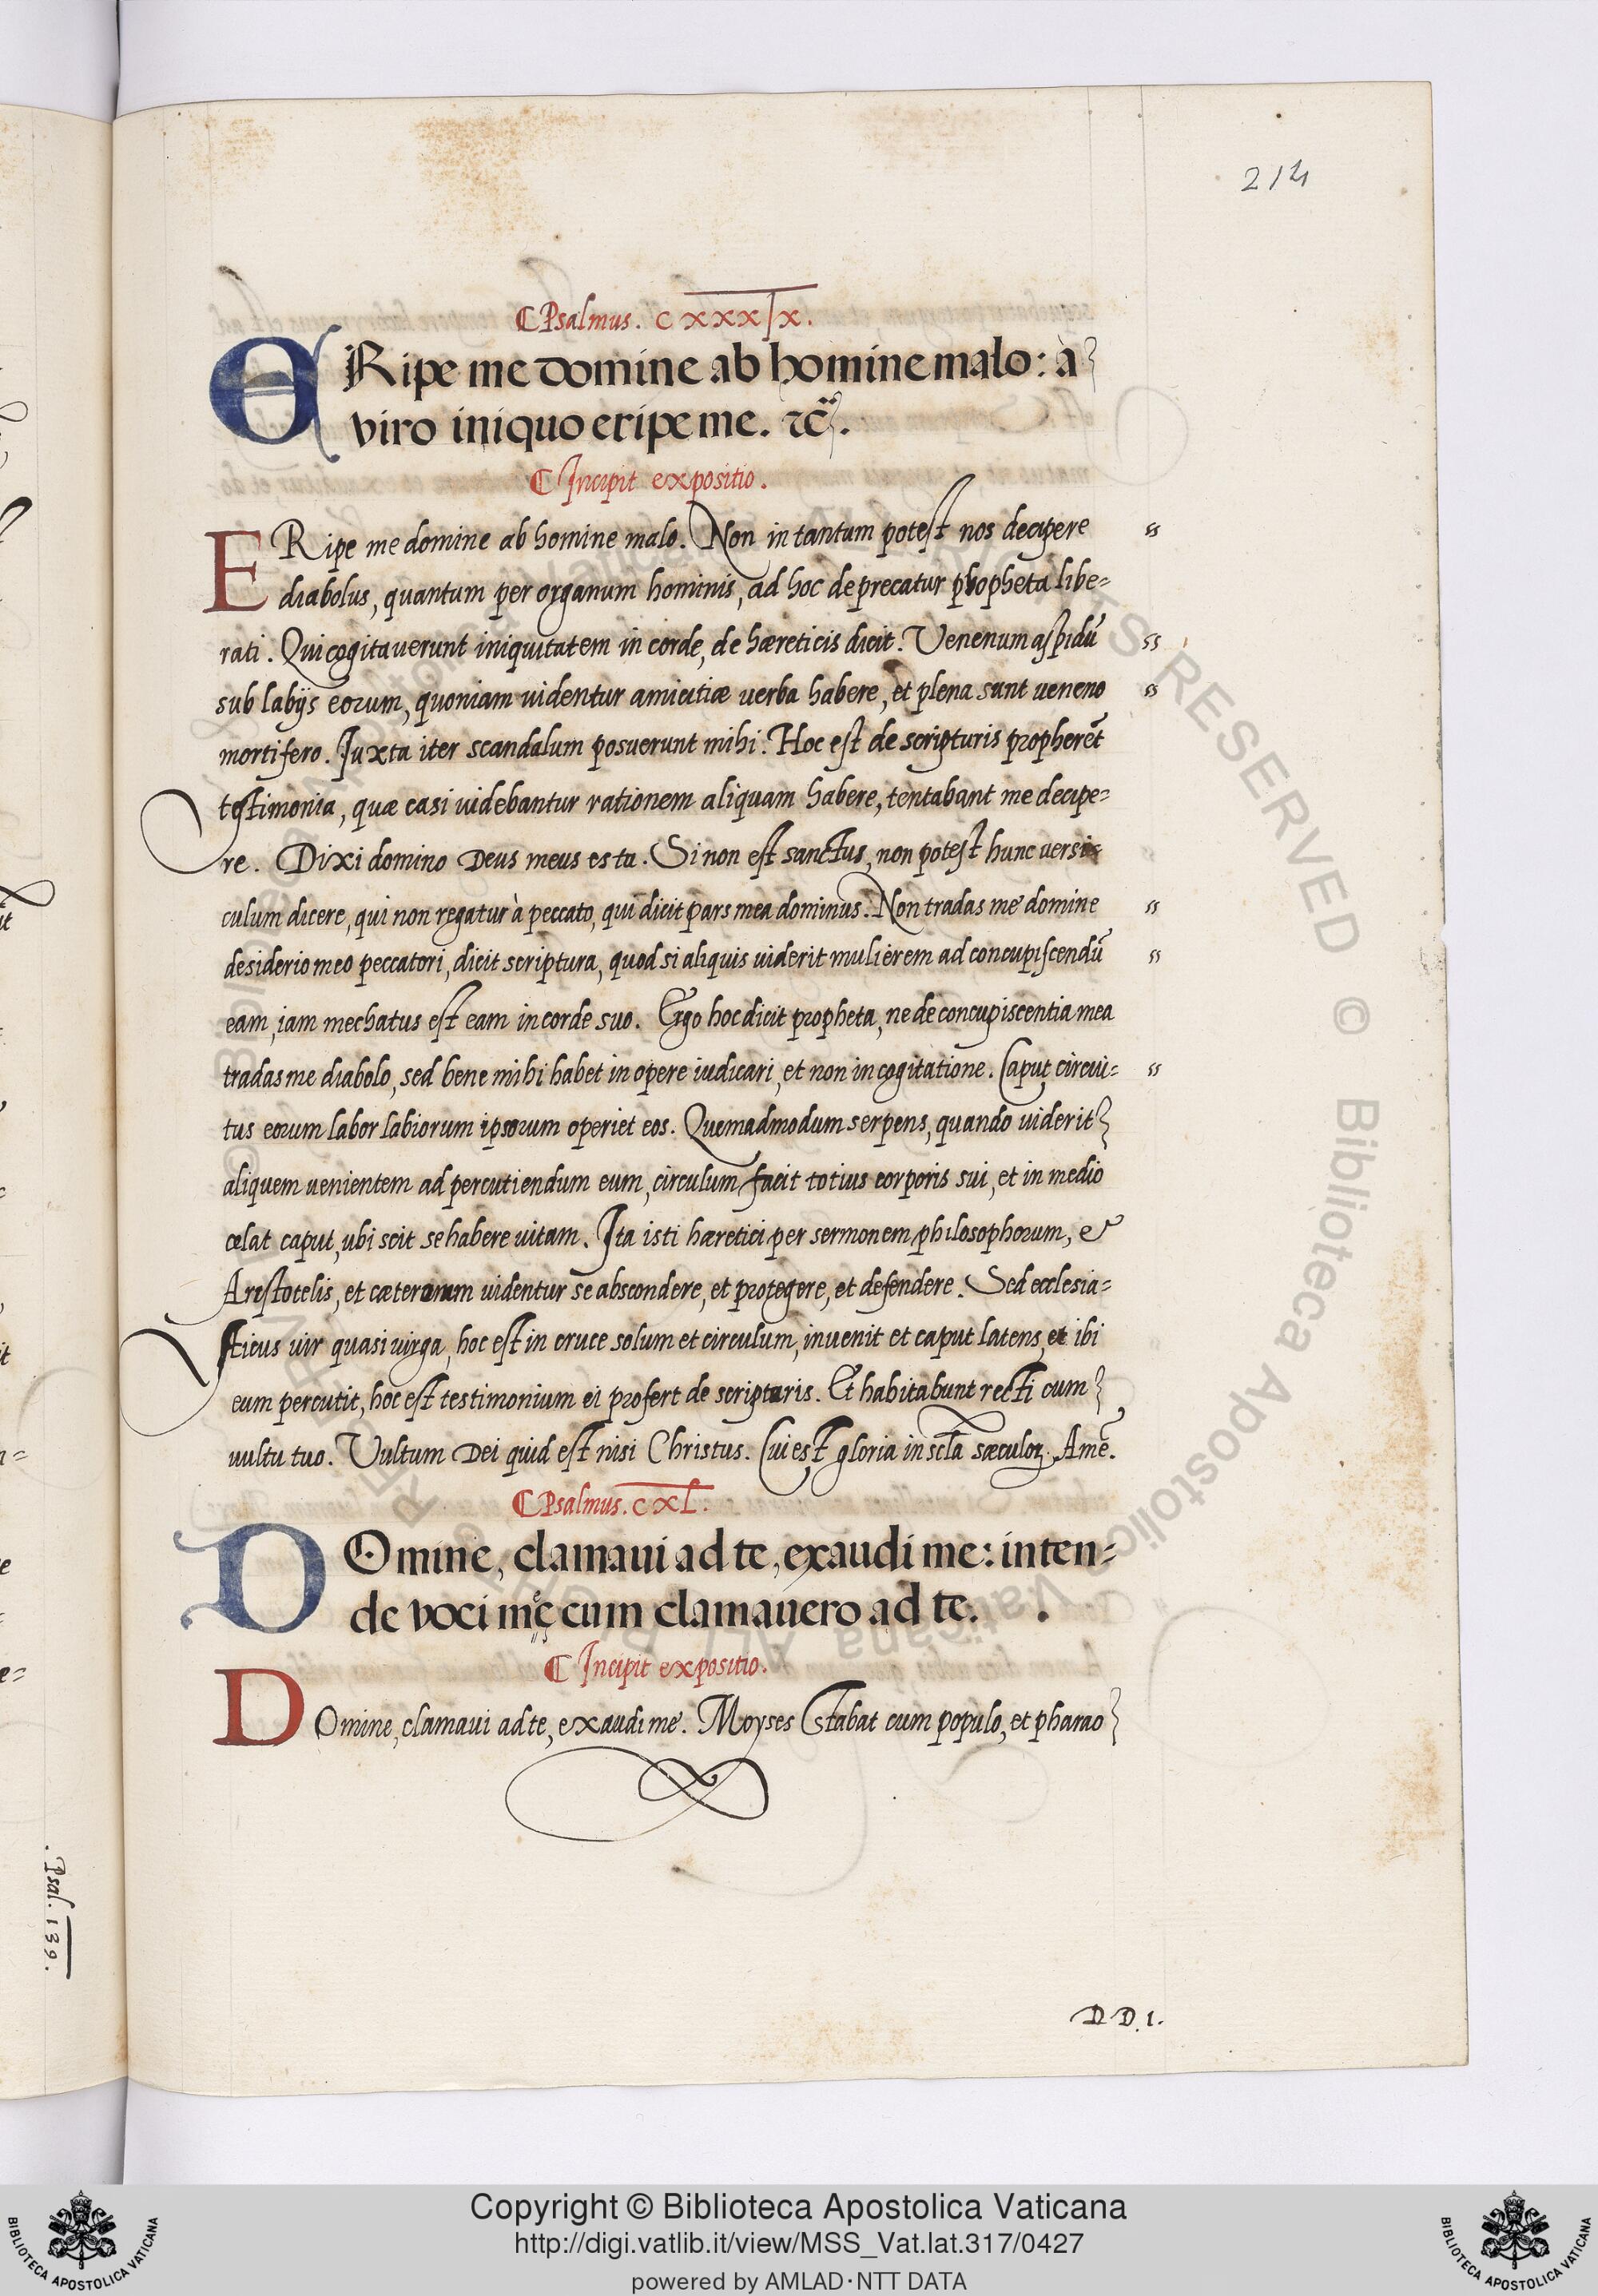 214
Psalmus. CXXXIX.
ERipe me domine ab homine malo: à
viro iniquo eripe me. ⁊c̃.
Incipit expositio.
ERipe me domine ab homine malo. Non in tantum potest nos decipere
diabolus, quantum per organum hominis, ad hoc deprecatur propheta libe=
rati. Qui cogitauerunt iniquitatem in corde, de hæreticis dicit. Venenum aspidũ
sub labijs eorum, quoniam uidentur amicitiæ uerba habere, et plena sunt ueneno
mortifero. Juxta iter scandalum posuerunt mihi. Hoc est de scripturis propherẽt
testimonia, quæ casi uidebantur rationem aliquam habere, tentabant me decipe=
re. Dixi domino Deus meus es tu. Si non est sanctus, non potest hunc uersi
culum dicere, qui non regatur à peccato, qui dicit pars mea dominus. Non tradas me domine
desiderio meo peccatori, dicit scriptura, quod si aliquis uiderit mulierem ad concupiscendũ
eam, iam mechatus est eam in corde suo. Ergo hoc dicit propheta, ne de concupiscentia mea
tradas me diabolo, sed bene mihi habet in opere iudicari, et non in cogitatione. Caput circui=
tus eorum labor labiorum ipsorum operiet eos. Quemadmodum serpens, quando uiderit
aliquem uenientem ad percutiendum eum, circulum facit totius corporis sui, et in medio
celat caput, ubi scit se habere uitam. Ita isti hæretici per sermonem philosophorum, et
Arestotelis, et cæterorum uidentur se abscondere, et protegere, et defendere. Sed ecclesia=
sticus uir quasi uirga, hoc est in cruce solum et circulum, inuenit et caput latens, et ibi
eum percutit, hoc est testimonium ei profert de scripturis. Et habitabunt recti cum
uultu tuo. Vultum Dei quid est nisi Christus. Cui est gloria in scl̃a sæculoꝝ. Amẽ.
Psalmus. CXL.
DOmine, clamaui ad te, exaudi me: inten=
de voci meę cum clamauero ad te.
Incipit expositio.
DOmine, clamaui ad te, exaudi me. Moyses stabat cum populo, et pharao
.Psal. 139.
DD.1.
Copyright © Biblioteca Apostolica Vaticana
http://digi.vatlib.it/view/MSS_Vat.lat.317/0427
powered by AMLAD·NTT DATA
BIBLIOTECA APOSTOLICA VATICANA
BIBLIOTECA APOSTOLICA VATICANA